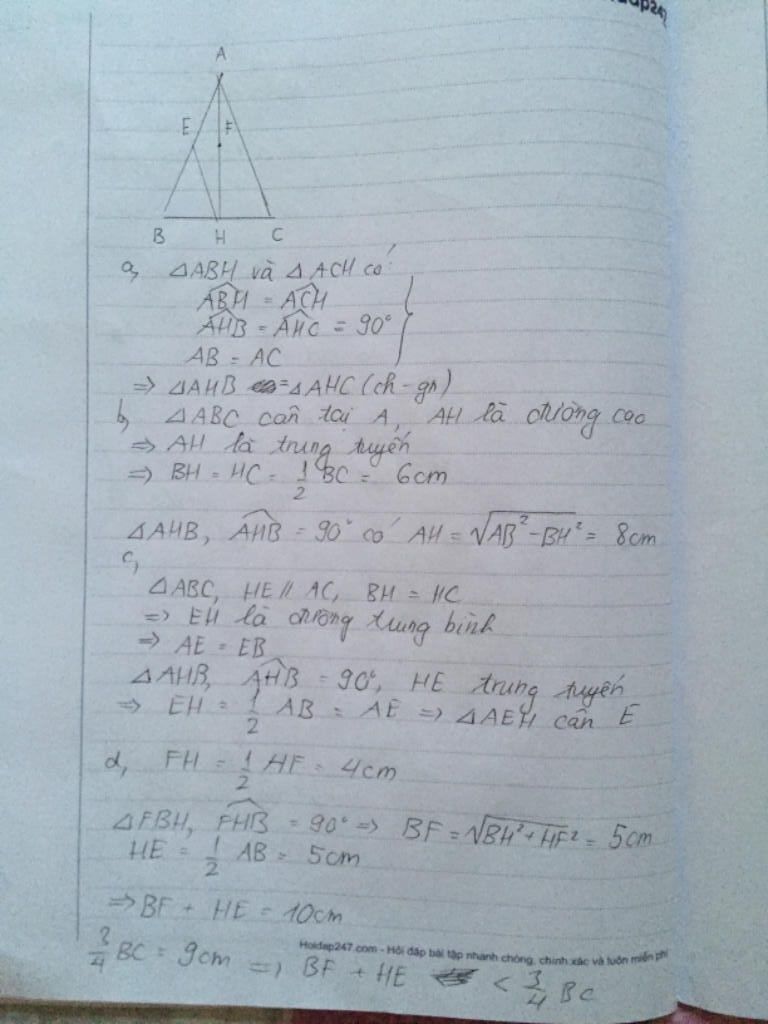 A
E
F
B
H
C
a, △ABH và △ACH có:
ABH = ACH
AHB = AHC = 90°
AB = AC
=> △AHB = △AHC (ch-gn)
b, △ABC cân tại A, AH là đường cao
=> AH là trung tuyến
=> BH = HC = 1/2 BC = 6cm
△AHB, AHB = 90° có AH = √(AB² - BH²) = 8cm
c,
△ABC, HE // AC, BH = HC
=> EH là đường trung bình
=> AE = EB
△AHB, AHB = 90°, HE trung tuyến
=> EH = 1/2 AB = AE => △AEH cân E
d, FH = 1/2 HF = 4cm
△FBH, FHB = 90° => BF = √(BH² + HF²) = 5cm
HE = 1/2 AB = 5cm
=> BF + HE = 10cm
Hoidap247.com - Hỏi đáp bài tập nhanh chóng, chính xác và luôn miễn phí
3/4 BC = 9cm => BF + HE < 3/4 BC